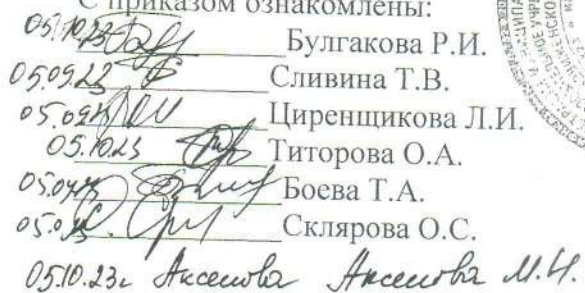 С приказом ознакомлены:
05.10.23 Булгакова Р.И.
05.09.23 Сливина Т.В.
Циренщикова Л.И.
05.10.23 Титорова О.А.
Боева Т.А.
Склярова О.С.
05.10.23г Аксенова Аксенова М.И.